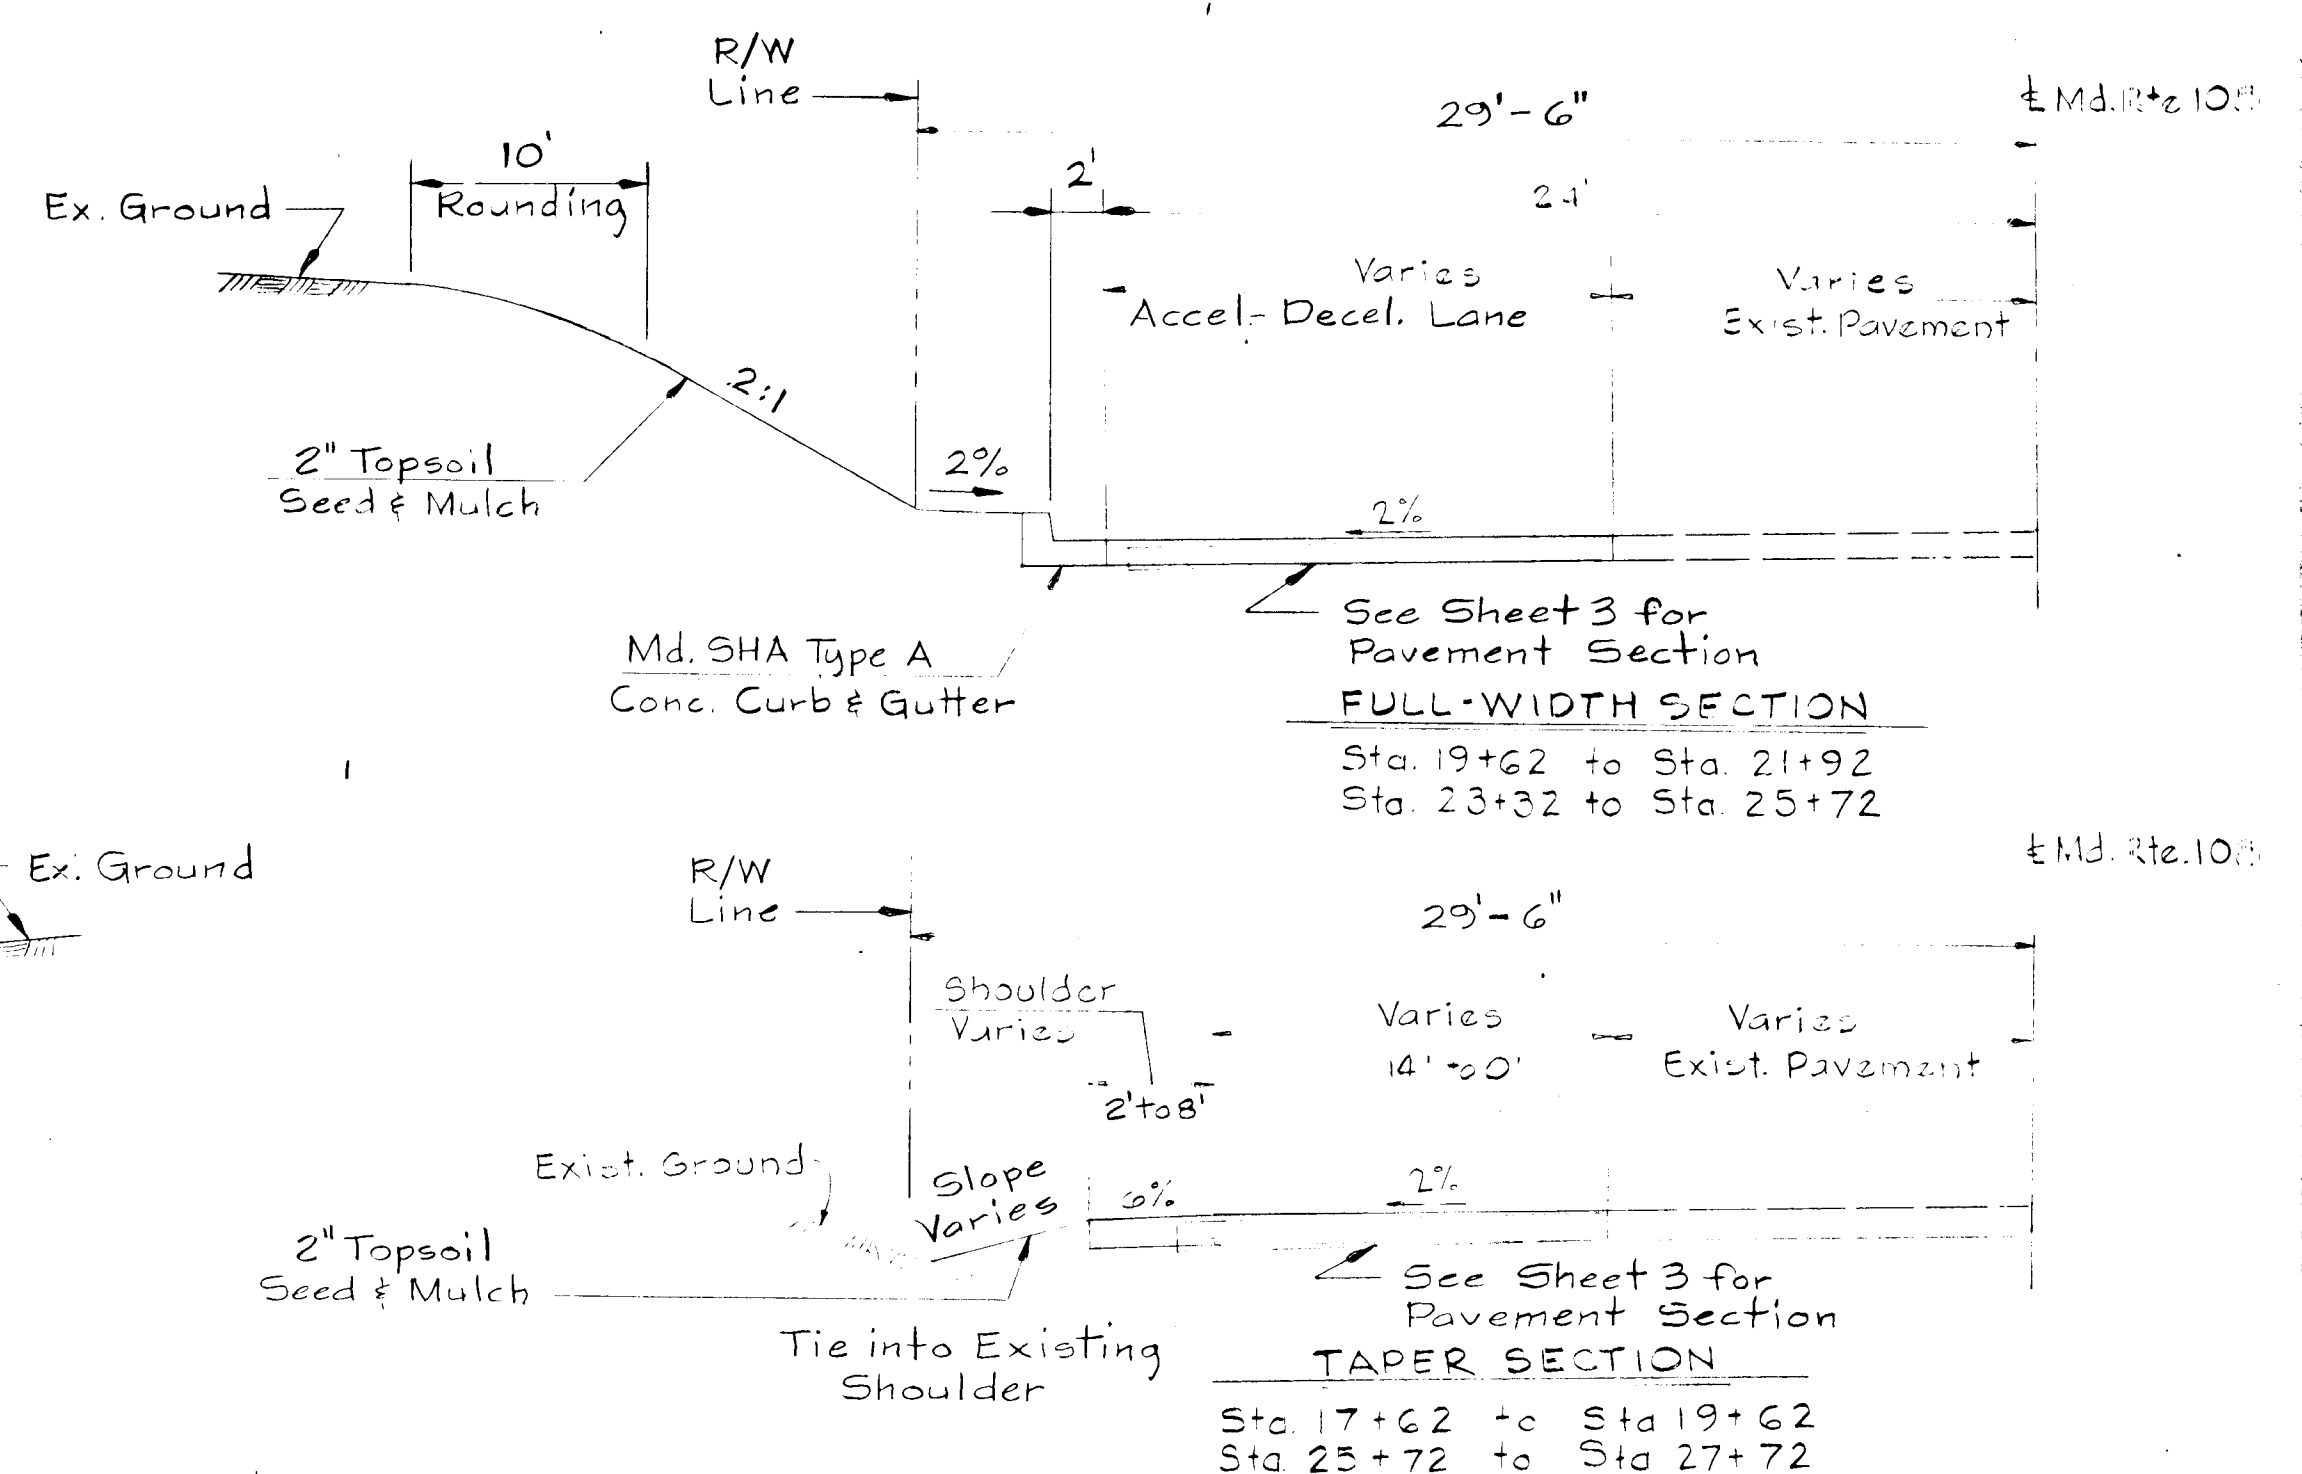 R/W
Line
29'-6"
℄ Md. Rte 108
10'
Rounding
2'
Ex. Ground
Varies
Accel-Decel. Lane
Varies
Exist. Pavement
2:1
2" Topsoil
Seed & Mulch
2%
2%
See Sheet 3 for
Pavement Section
Md. SHA Type A
Conc. Curb & Gutter
FULL-WIDTH SECTION
Sta. 19+62 to Sta. 21+92
Sta. 23+32 to Sta. 25+72
Ex. Ground
R/W
Line
29'-6"
℄ Md. Rte. 108
Shoulder
Varies
2' to 8'
Varies
14' to 0'
Varies
Exist. Pavement
Exist. Ground
Slope
Varies
6%
2%
2" Topsoil
Seed & Mulch
See Sheet 3 for
Pavement Section
Tie into Existing
Shoulder
TAPER SECTION
Sta. 17+62 to Sta 19+62
Sta. 25+72 to Sta 27+72